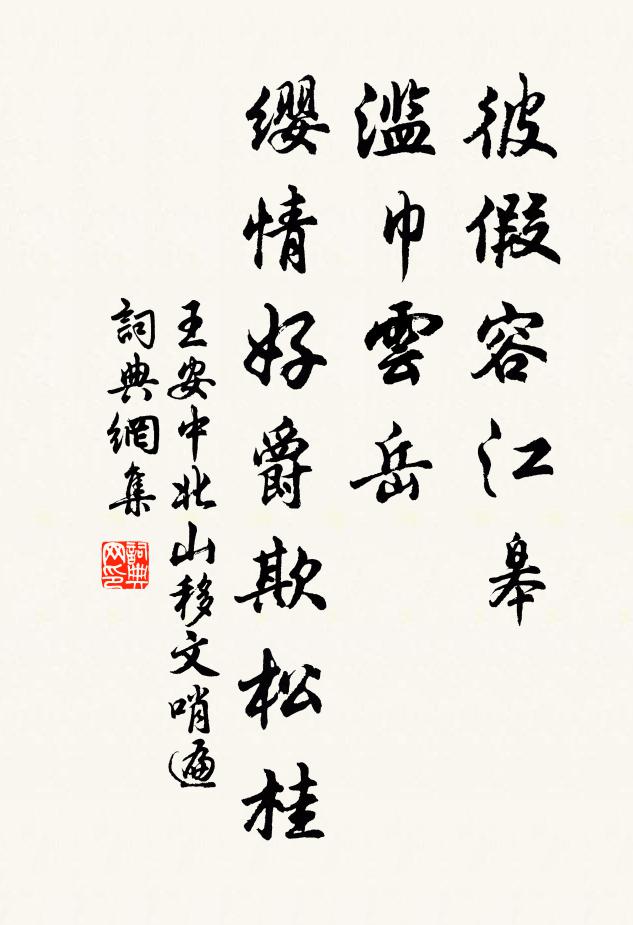 彼假容江皋
濫巾雲岳
纓情好爵欺松桂
王安中北山移文哨遍
詞典網集
詞典网印